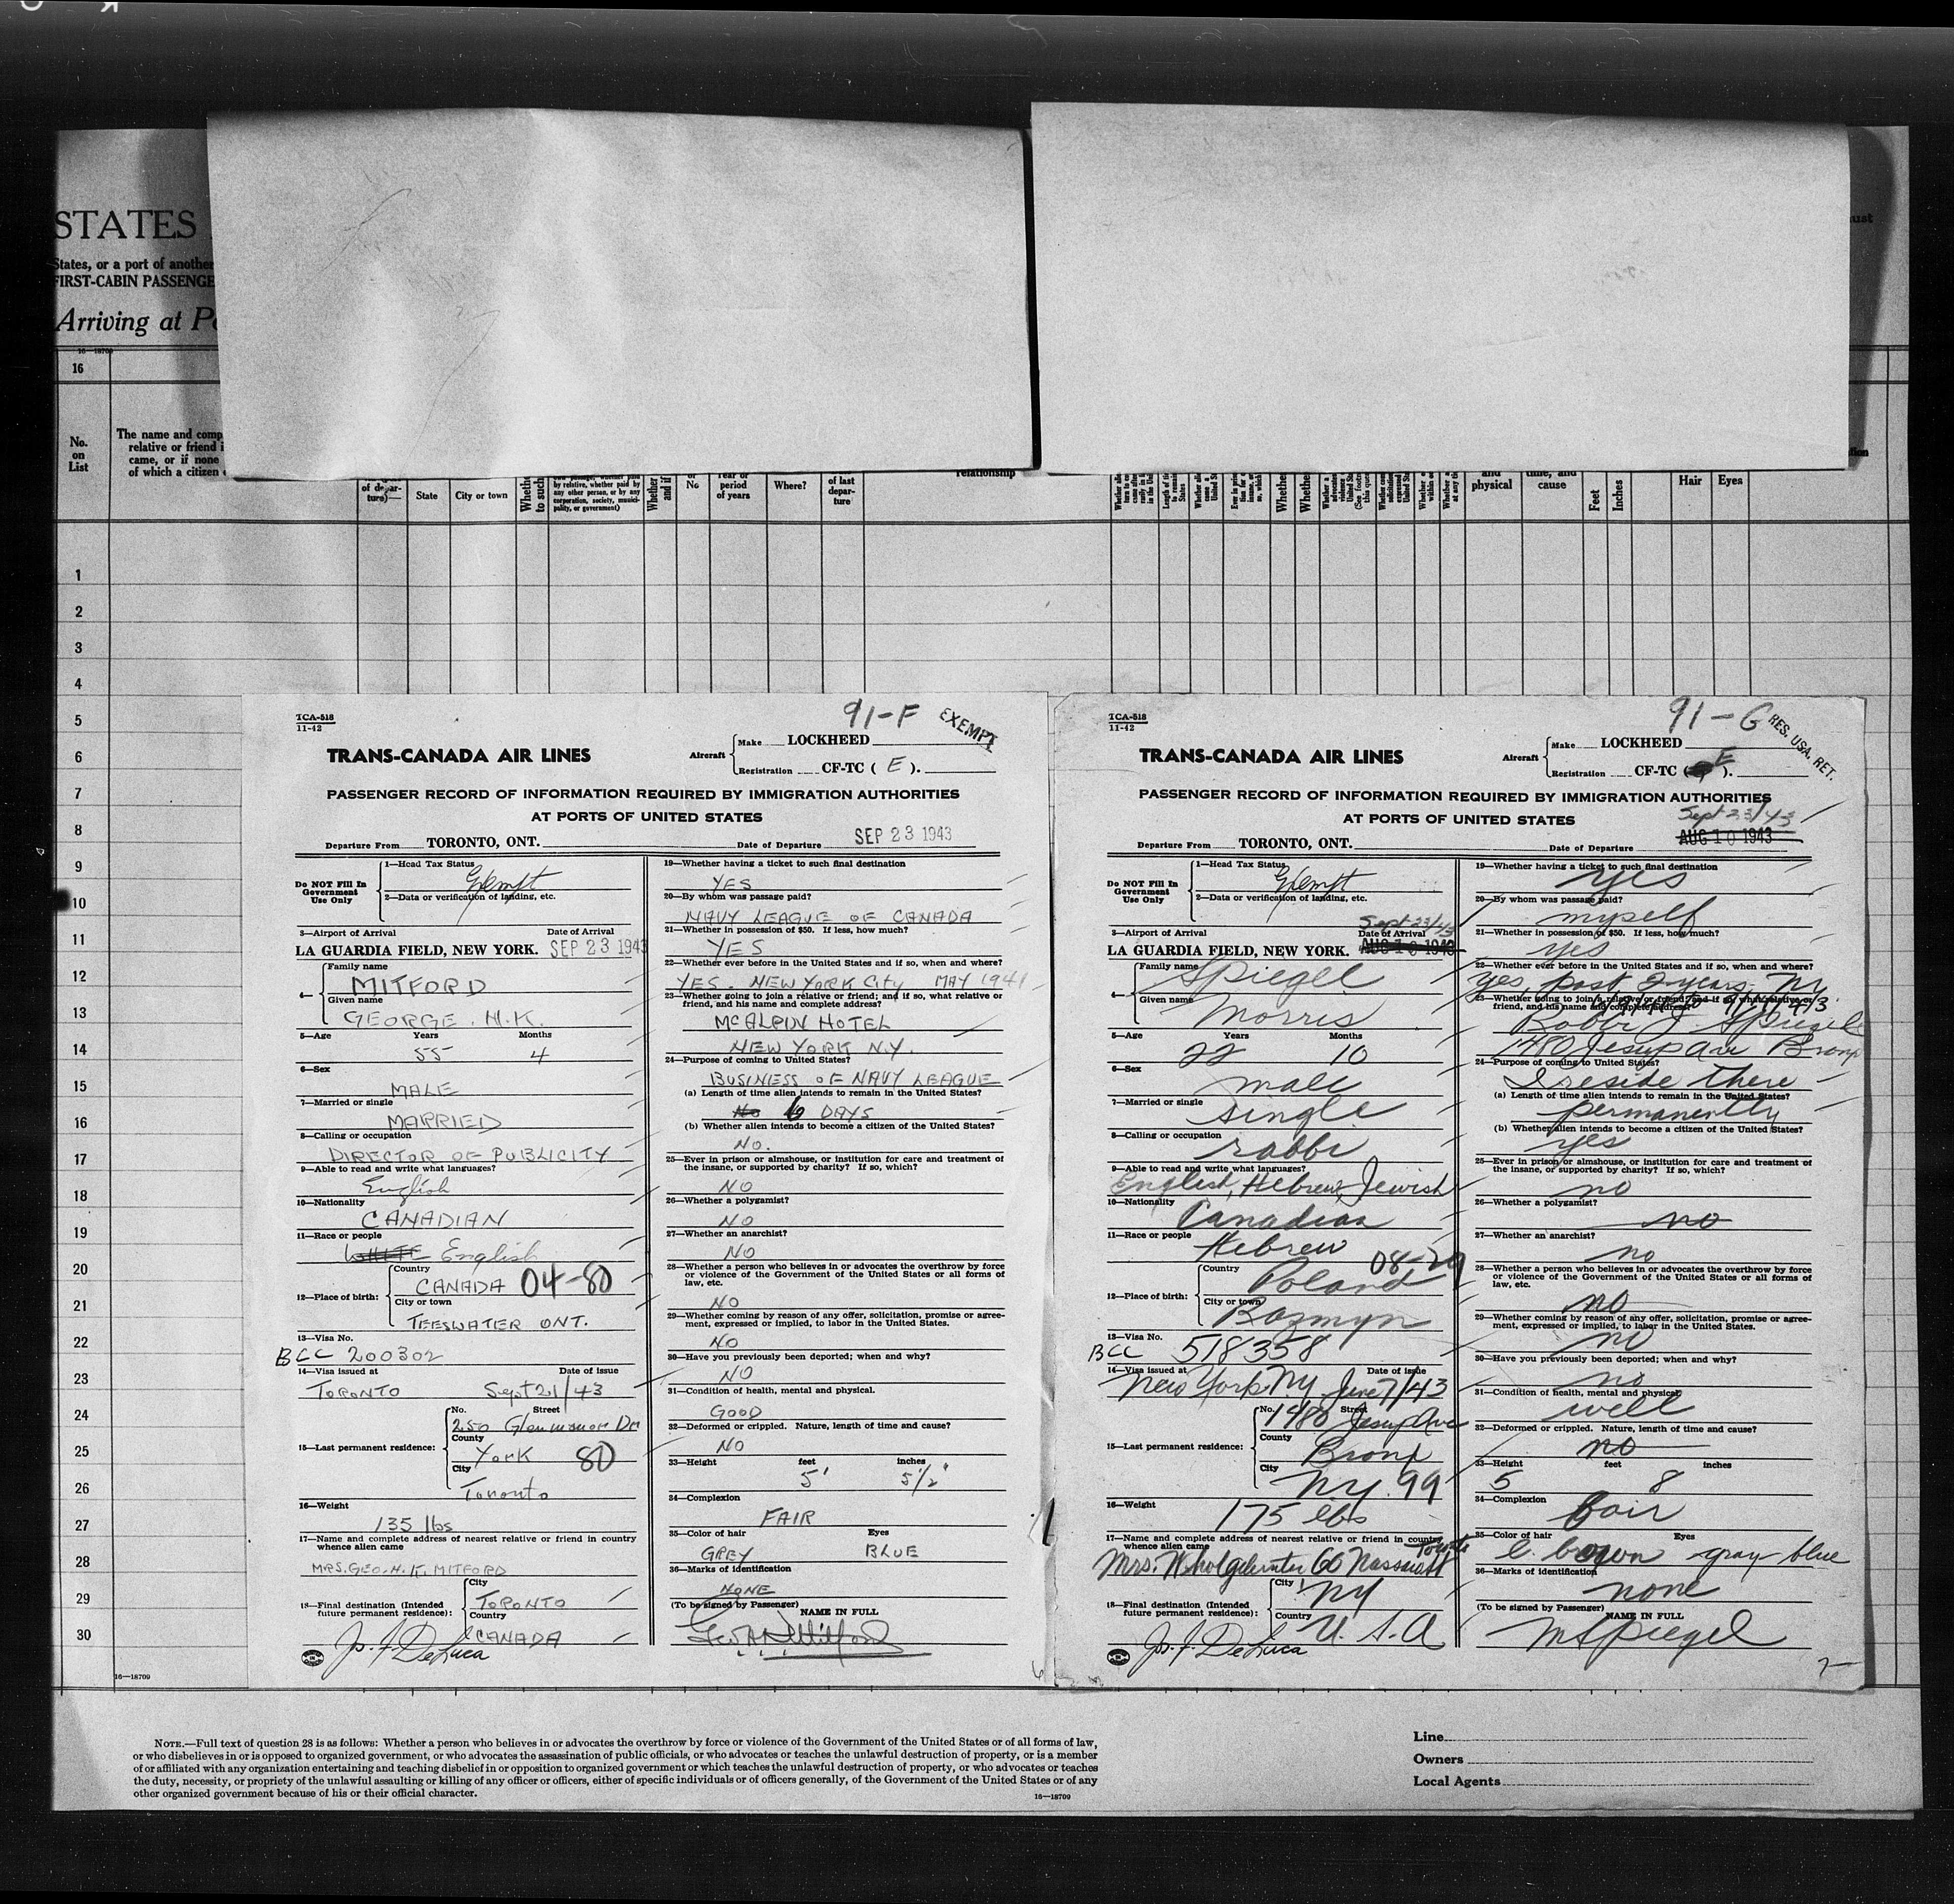 STATES
States, or a port of another
FIRST-CABIN PASSENGE
Arriving at Po
16—18709
16
No.
on
List
The name and comp
relative or friend i
came, or if none
of which a citizen
of depar-
ture)
State
City or town
by relative, whether paid by
any other person, or by any
corporation, society, munici-
pality, or government)
No
period
of years
Where?
of last
depar-
ture
relationship
and
physical
time, and
cause
Feet
Inches
Hair
Eyes
1
2
3
4
5
6
7
8
9
10
11
12
13
14
15
16
17
18
19
20
21
22
23
24
25
26
27
28
29
30
16—18709
TCA-518
11-42
91-F EXEMPT
TRANS-CANADA AIR LINES
Aircraft
Make LOCKHEED
Registration CF-TC ( E ).
PASSENGER RECORD OF INFORMATION REQUIRED BY IMMIGRATION AUTHORITIES
AT PORTS OF UNITED STATES
Departure From TORONTO, ONT. Date of Departure SEP 23 1943
Do NOT Fill In
Government
Use Only
1—Head Tax Status
Exempt
2—Data or verification of landing, etc.
3—Airport of Arrival Date of Arrival
LA GUARDIA FIELD, NEW YORK. SEP 23 1943
4—
Family name
MITFORD
Given name
GEORGE. H.K.
5—Age Years Months
55 4
6—Sex
MALE
7—Married or single
MARRIED
8—Calling or occupation
DIRECTOR OF PUBLICITY
9—Able to read and write what languages?
English
10—Nationality
CANADIAN
11—Race or people
WHITE English
12—Place of birth:
Country
CANADA 04-80
City or town
TEESWATER ONT.
13—Visa No.
BCC 200302
14—Visa issued at Date of issue
TORONTO Sept 21/43
15—Last permanent residence:
No. Street
250 Glenmanor Dr
County
York 80
City
Toronto
16—Weight
135 lbs
17—Name and complete address of nearest relative or friend in country
whence alien came
MRS. GEO. H. K. MITFORD
18—Final destination (Intended
future permanent residence):
City
TORONTO
Country
CANADA
Jos. J. DeLuca
19—Whether having a ticket to such final destination
YES
20—By whom was passage paid?
NAVY LEAGUE OF CANADA
21—Whether in possession of $50. If less, how much?
YES
22—Whether ever before in the United States and if so, when and where?
YES. NEW YORK CITY MAY 1941
23—Whether going to join a relative or friend; and if so, what relative or
friend, and his name and complete address?
MCALPIN HOTEL
NEW YORK N.Y.
24—Purpose of coming to United States?
BUSINESS OF NAVY LEAGUE
(a) Length of time alien intends to remain in the United States?
No 6 DAYS
(b) Whether alien intends to become a citizen of the United States?
NO.
25—Ever in prison or almshouse, or institution for care and treatment of
the insane, or supported by charity? If so, which?
NO
26—Whether a polygamist?
NO
27—Whether an anarchist?
NO
28—Whether a person who believes in or advocates the overthrow by force
or violence of the Government of the United States or all forms of
law, etc.
NO
29—Whether coming by reason of any offer, solicitation, promise or agree-
ment, expressed or implied, to labor in the United States.
NO
30—Have you previously been deported; when and why?
NO
31—Condition of health, mental and physical.
GOOD
32—Deformed or crippled. Nature, length of time and cause?
NO
33—Height feet inches
5' 5½"
34—Complexion
FAIR
35—Color of hair Eyes
GREY BLUE
36—Marks of identification
NONE
(To be signed by Passenger) NAME IN FULL
Geo H K Mitford
TCA-518
11-42
91-G RES. USA. RET.
TRANS-CANADA AIR LINES
Aircraft
Make LOCKHEED
Registration CF-TC ( E ).
PASSENGER RECORD OF INFORMATION REQUIRED BY IMMIGRATION AUTHORITIES
AT PORTS OF UNITED STATES
Sept 23/43
Departure From TORONTO, ONT. Date of Departure AUG 10 1943
Do NOT Fill In
Government
Use Only
1—Head Tax Status
Exempt
2—Data or verification of landing, etc.
Sept 23/43
3—Airport of Arrival Date of Arrival
LA GUARDIA FIELD, NEW YORK. AUG 10 1943
4—
Family name
Spiegel
Given name
Morris
5—Age Years Months
22 10
6—Sex
male
7—Married or single
single
8—Calling or occupation
rabbi
9—Able to read and write what languages?
English, Hebrew, Jewish
10—Nationality
Canadian
11—Race or people
Hebrew
12—Place of birth:
Country
Poland 08-29
City or town
Bozmyn
13—Visa No.
BCC 518358
14—Visa issued at Date of issue
New York NY June 7/43
15—Last permanent residence:
No. Street
1480 Jesup Ave
County
Bronx
City
NY. 99
16—Weight
175 lbs
17—Name and complete address of nearest relative or friend in country
whence alien came
Mrs. 60 Nassau St Toronto
18—Final destination (Intended
future permanent residence):
City
NY
Country
U.S.A
Jos. J. DeLuca
19—Whether having a ticket to such final destination
yes
20—By whom was passage paid?
myself
21—Whether in possession of $50. If less, how much?
yes
22—Whether ever before in the United States and if so, when and where?
yes, past 2 years, NY
23—Whether going to join a relative or friend; and if so, what relative or
friend, and his name and complete address?
Rabbi J. Spiegel
1480 Jesup Ave Bronx
24—Purpose of coming to United States?
I reside there
(a) Length of time alien intends to remain in the United States?
permanently
(b) Whether alien intends to become a citizen of the United States?
yes
25—Ever in prison or almshouse, or institution for care and treatment of
the insane, or supported by charity? If so, which?
no
26—Whether a polygamist?
no
27—Whether an anarchist?
no
28—Whether a person who believes in or advocates the overthrow by force
or violence of the Government of the United States or all forms of
law, etc.
no
29—Whether coming by reason of any offer, solicitation, promise or agree-
ment, expressed or implied, to labor in the United States.
no
30—Have you previously been deported; when and why?
no
31—Condition of health, mental and physical.
well
32—Deformed or crippled. Nature, length of time and cause?
no
33—Height feet inches
5 8
34—Complexion
fair
35—Color of hair Eyes
l. brown gray-blue
36—Marks of identification
none
(To be signed by Passenger) NAME IN FULL
M Spiegel
NOTE.—Full text of question 28 is as follows: Whether a person who believes in or advocates the overthrow by force or violence of the Government of the United States or of all forms of law,
or who disbelieves in or is opposed to organized government, or who advocates the assassination of public officials, or who advocates or teaches the unlawful destruction of property, or is a member
of or affiliated with any organization entertaining and teaching disbelief in or opposition to organized government or which teaches the unlawful destruction of property, or who advocates or teaches
the duty, necessity, or propriety of the unlawful assaulting or killing of any officer or officers, either of specific individuals or of officers generally, of the Government of the United States or of any
other organized government because of his or their official character.
16—18709
Line
Owners
Local Agents